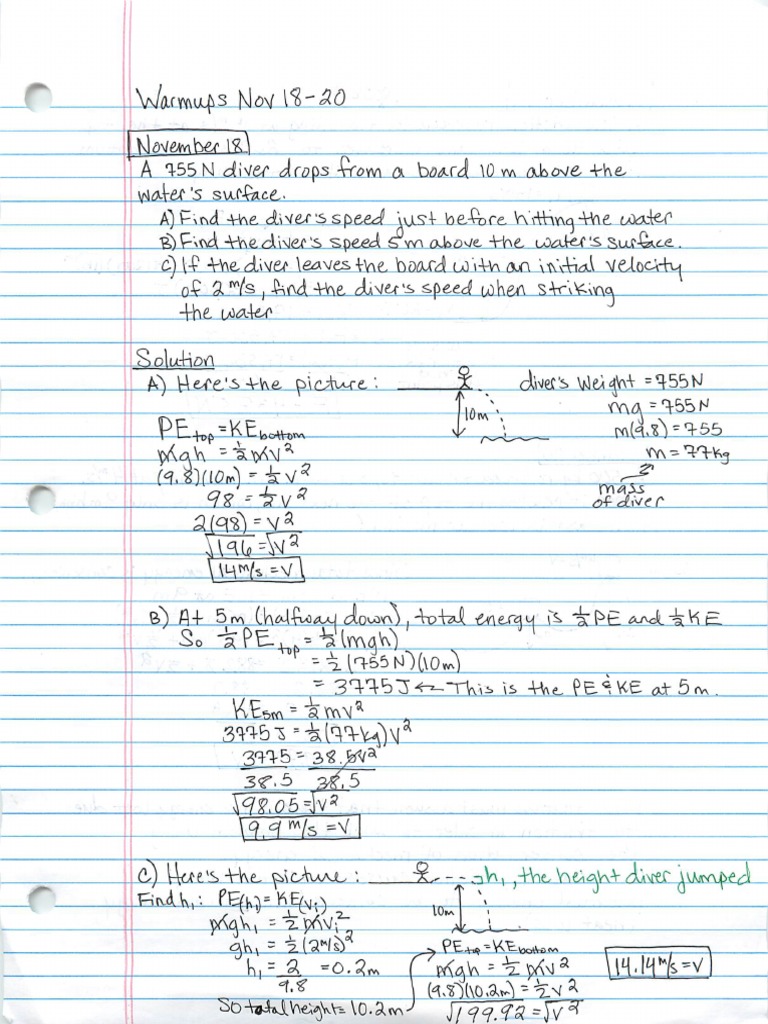 Warmups Nov 18-20
November 18
A 755 N diver drops from a board 10 m above the
water's surface.
A) Find the diver's speed just before hitting the water
B) Find the diver's speed 5m above the water's surface.
C) If the diver leaves the board with an initial velocity
of 2 m/s, find the diver's speed when striking
the water
Solution
A) Here's the picture:
10m
diver's weight = 755N
mg = 755N
m(9.8) = 755
m = 77kg
mass
of diver
PE top = KE bottom
mgh = ½mv²
(9.8)(10m) = ½v²
98 = ½v²
2(98) = v²
√196 = √v²
14 m/s = v
B) At 5m (halfway down), total energy is ½PE and ½KE
So ½PE top = ½(mgh)
= ½(755N)(10m)
= 3775J ← This is the PE & KE at 5m.
KE5m = ½mv²
3775J = ½(77kg)v²
3775 = 38.5v²
38.5 38.5
√98.05 = √v²
9.9 m/s = v
C) Here's the picture:
h₁, the height diver jumped
10m
Find h₁: PE(h₁) = KE(vi)
mgh₁ = ½mvi²
gh₁ = ½(2m/s)²
h₁ = 2/9.8 = 0.2m
So total height = 10.2m
PE top = KE bottom
mgh = ½mv²
(9.8)(10.2m) = ½v²
√199.92 = √v²
14.14 m/s = v